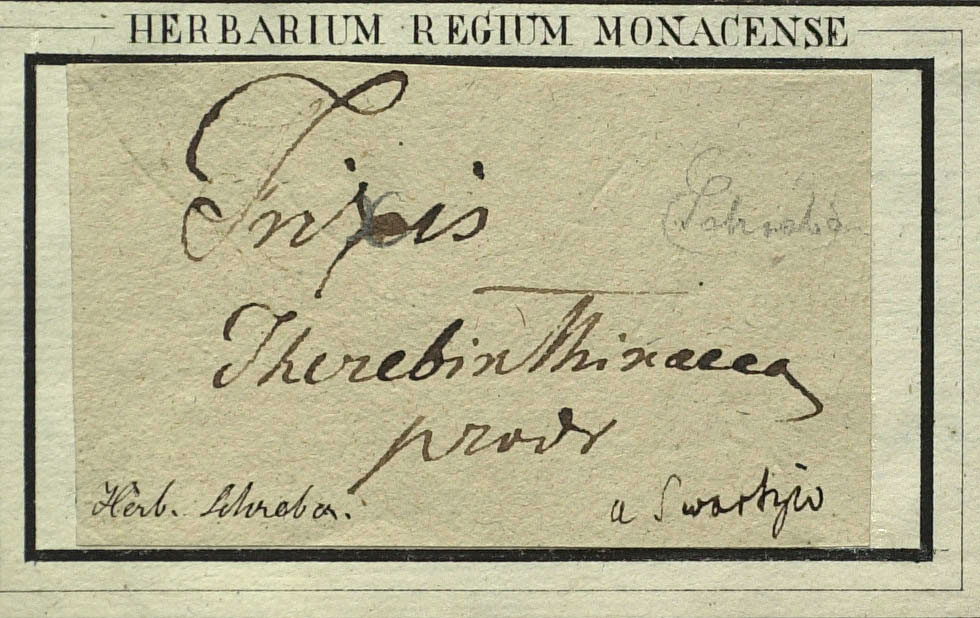 HERBARIUM REGIUM MONACENSE
Therebinthinacea
prodr
Herb. Schreber.
a Swartzio